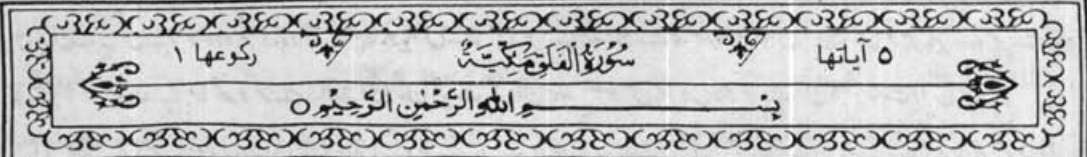 ٥ آياتها سُوْرَةُ الْفَلَقِ مَكِّيَّةٌ ركوعها ١
بِسْمِ اللّٰهِ الرَّحْمٰنِ الرَّحِيْمِ ○